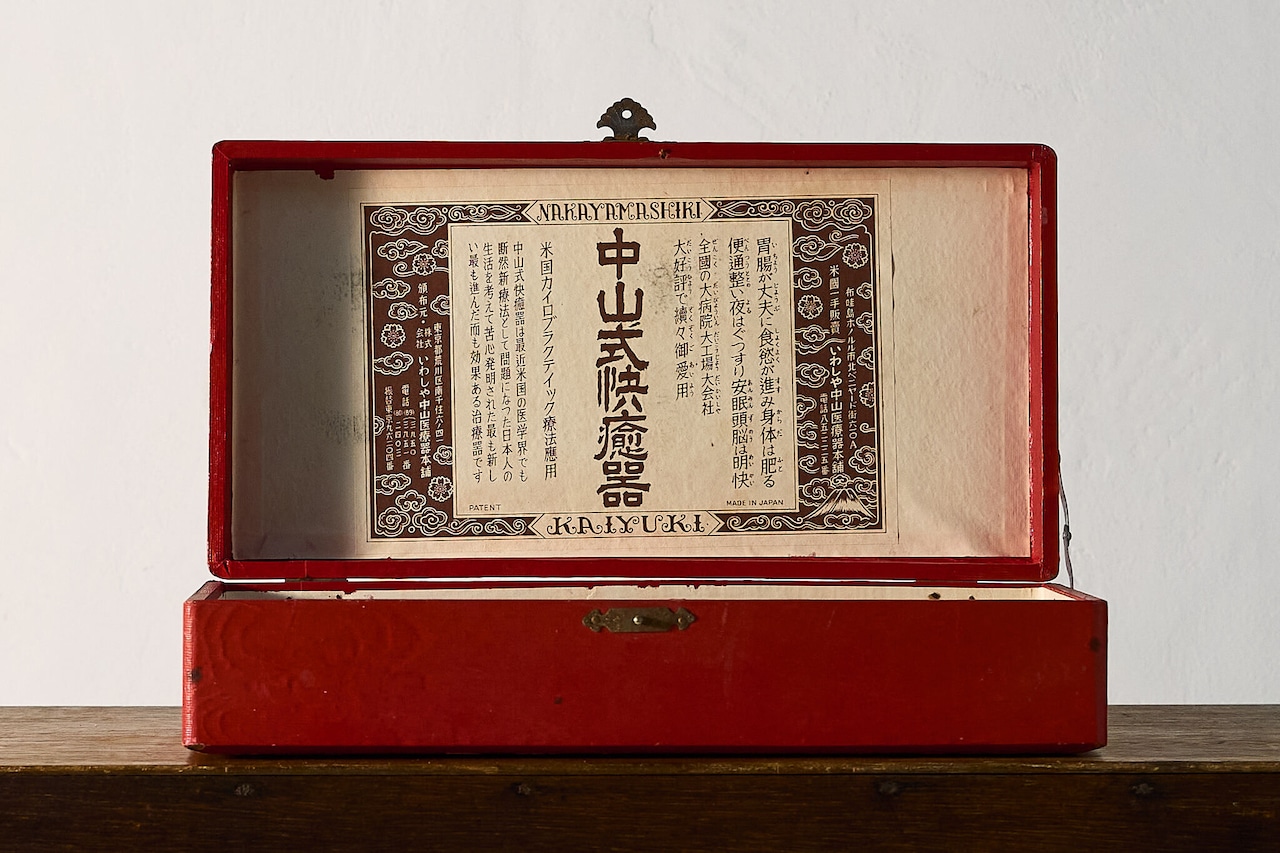 NAKAYAMASHIKI
布哇島ホノルル市北ベニヤード街六二〇A
米國一手販賣 いわしや中山医療器本舗
電話八五三二二五番
胃腸が大夫に食慾が進み身体は肥る
便通整い夜はぐつすり安眠頭脳は明快
全國の大病院大工場大会社
大好評で續々御愛用
中山式快癒器
米国カイロプラクテイツク療法應用
中山式快癒器は最近米国の医学界でも
断然新療法として問題になつた日本人の
生活を考えて苦心発明された最も新し
い最も進んだ而も効果ある治療器です
東京都荒川区南千住六ノ四一
頒布元・株式会社 いわしや中山医療器本舗
電話
振替東京九六二〇四番
PATENT
MADE IN JAPAN
KAIYUKI